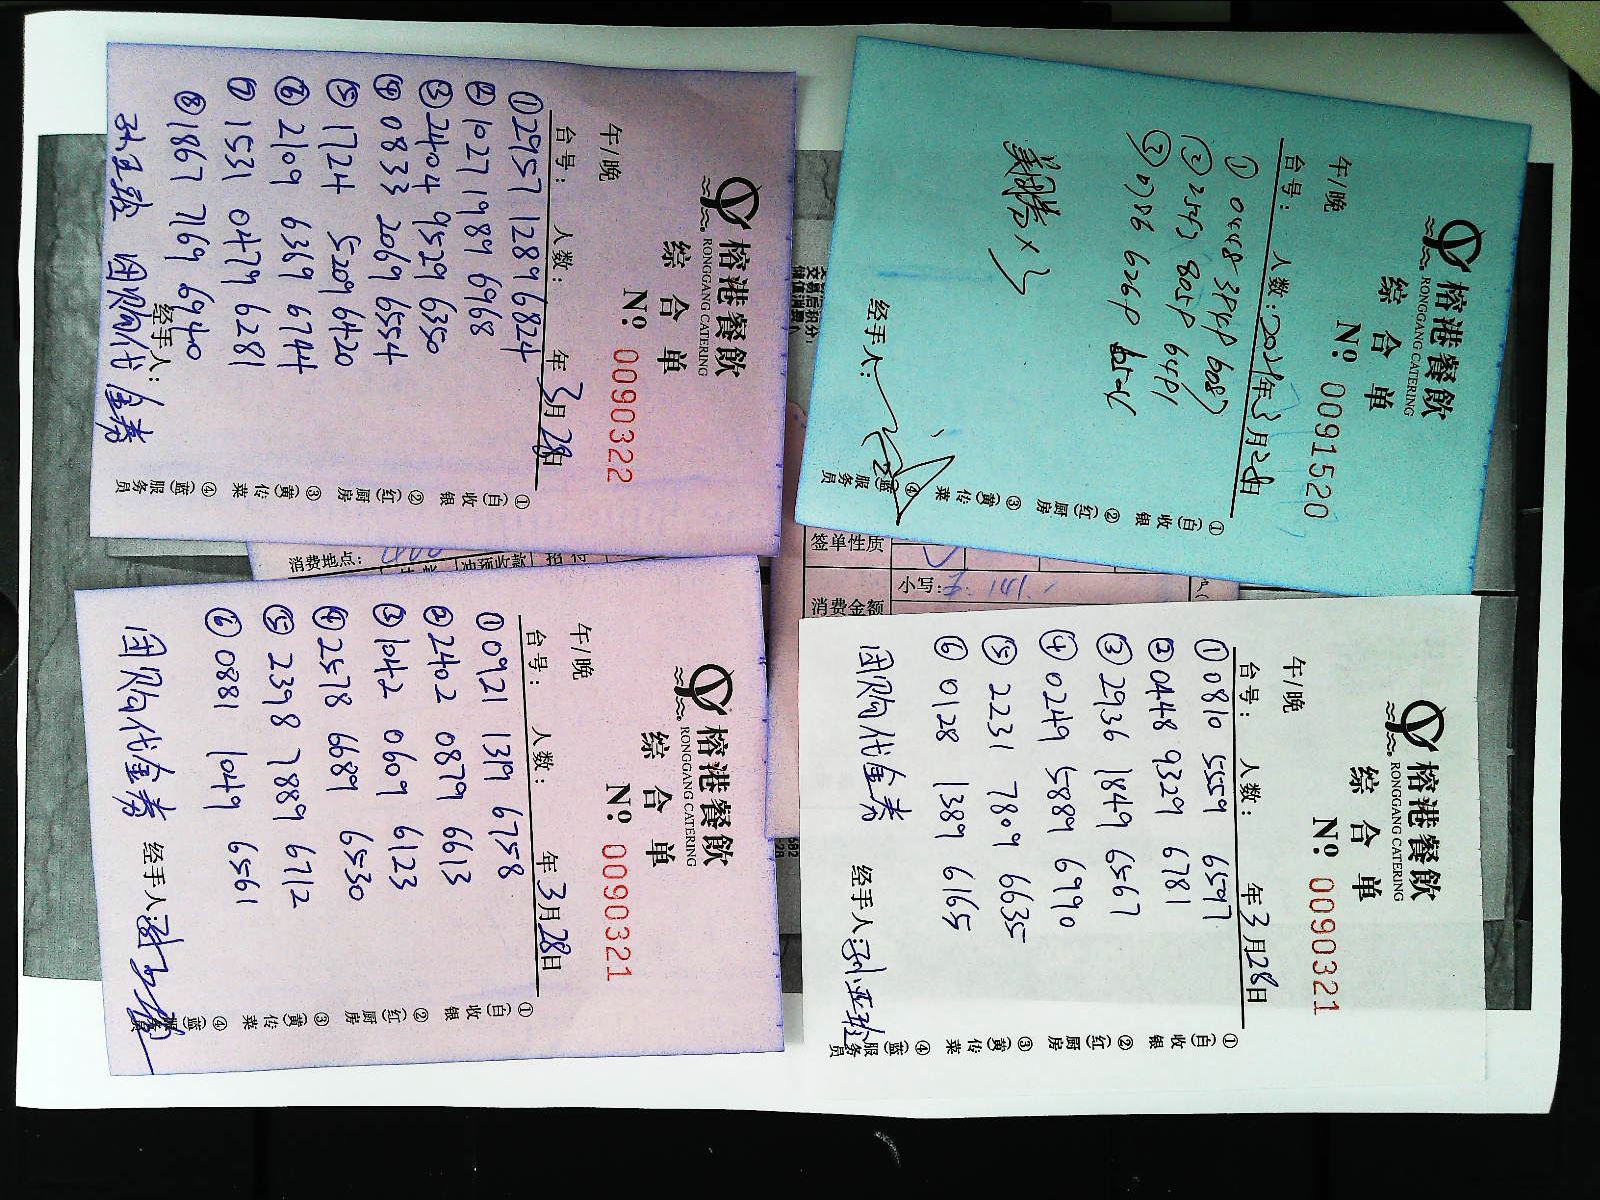 榕港餐飲
RONGGANG CATERING
综合单
午/晚 № 0090322
台号： 人数： 年 3月 28日
① 2957 1289 6824
② 1027 1989 6968
③ 2404 9529 6350
④ 0833 2069 6554
⑤ 1724 5209 6420
⑥ 2109 6369 6744
⑦ 1531 0479 6281
⑧ 1867 7169 6940
经手人：
团购代金券
①(白)收银 ②(红)厨房 ③(黄)传菜 ④(蓝)服务员
榕港餐飲
RONGGANG CATERING
综合单
午/晚 № 0091520
台号： 人数： 年3月 日
经手人：
①(白)收银 ②(红)厨房 ③(黄)传菜 ④(蓝)服务员
消费地点：
签单性质
小写：
消费金额
榕港餐飲
RONGGANG CATERING
综合单
午/晚 № 0090321
台号： 人数： 年3月28日
① 0921 1319 6758
② 2402 0879 6613
③ 1042 0609 6123
④ 2578 6689 6530
⑤ 2398 7889 6712
⑥ 0881 1049 6561
团购代金券 经手人：
①(白)收银 ②(红)厨房 ③(黄)传菜 ④(蓝)服务员
榕港餐飲
RONGGANG CATERING
综合单
午/晚 № 0090321
台号： 人数： 年3月28日
① 0810 5559 6597
② 0448 9329 6781
③ 2936 1849 6567
④ 0249 5889 6990
⑤ 2231 7809 6635
⑥ 0128 1389 6165
团购代金券 经手人：
①(白)收银 ②(红)厨房 ③(黄)传菜 ④(蓝)服务员